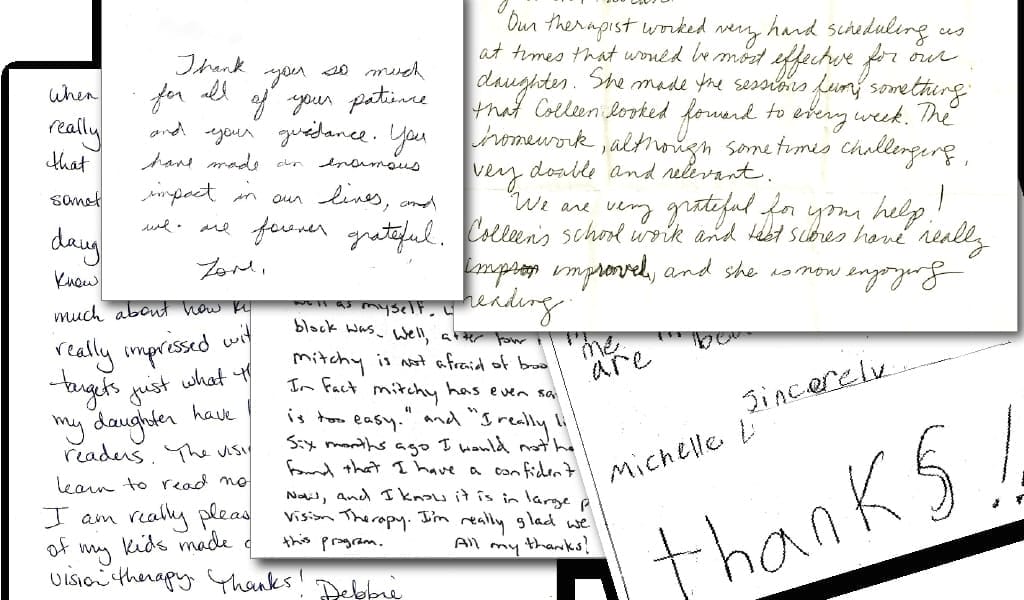 Thank you so much
for all of your patience
and your guidance. You
have made an enormous
impact in our lives, and
we are forever grateful.
Love,
Our therapist worked very hard scheduling us
at times that would be most effective for our
daughter. She made the sessions fun, something
that Colleen looked forward to every week. The
homework, although sometimes challenging,
very doable and relevant.
We are very grateful for your help!
Colleen's school work and test scores have really
improved, and she is now enjoying
reading.
When
really
that
daug
Know
much about how ki
really impressed wit
targets just what th
my daughter have
readers. The visi
learn to read no
I am really pleas
of my kids made
vision therapy. Thanks!
Debbie
well as myself.
block was. Well, after four
mitchy is not afraid of boo
In fact mitchy has even sa
is too easy." and "I really li
Six months ago I would not ha
found that I have a confident
Now, and I know it is in large p
Vision Therapy. I'm really glad we
this program. All my thanks!
me
are
Sincerely
Michelle L
thanks!